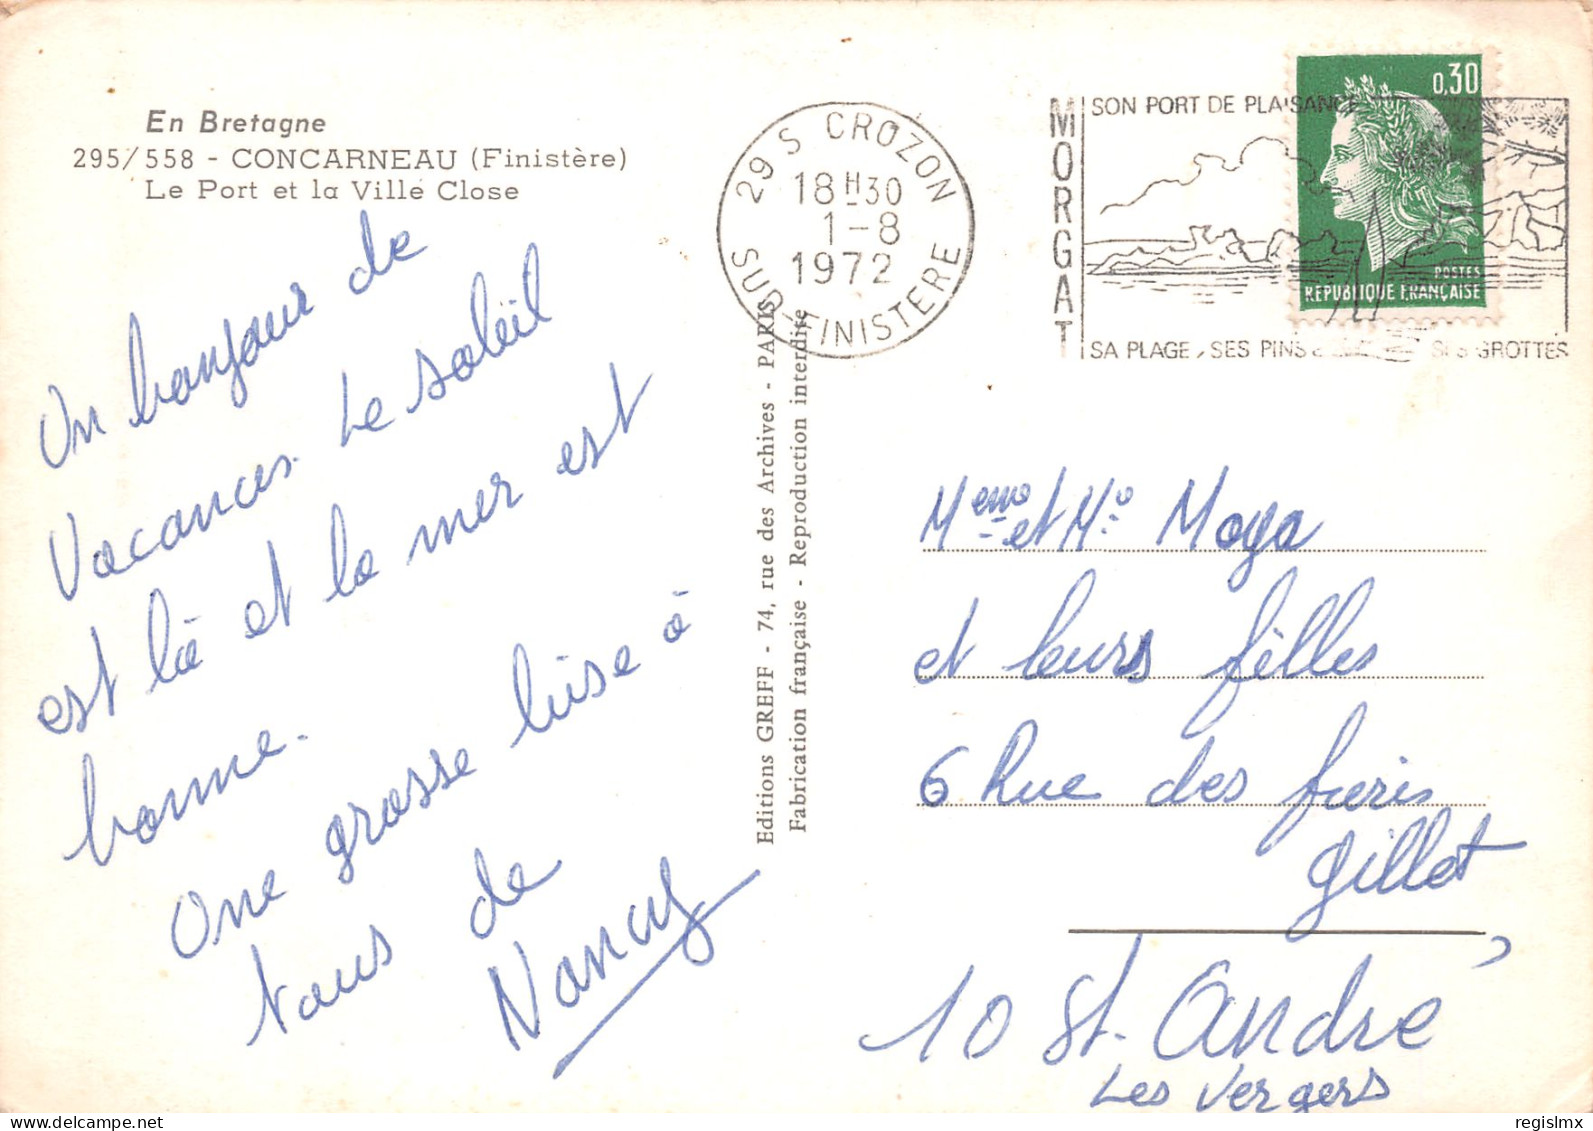 En Bretagne
295/558 - CONCARNEAU (Finistère)
Le Port et la Ville Close
Un bonjour de
Vacances. Le soleil
est là et la mer est
bonne.
Une grosse bise à
tous de
Nancy
Editions GREFF - 74, rue des Archives - PARIS
Fabrication française - Reproduction interdite
29 S CROZON
18H30
1-8
1972
SUD-FINISTERE
MORGAT
SON PORT DE PLAISANCE
SA PLAGE, SES PINS
SES GROTTES
0,30
POSTES
REPUBLIQUE FRANÇAISE
Meme et Mo Moya
et leurs filles
6 Rue des freris
Gillet
10 St. André
Les Vergers
regislmx